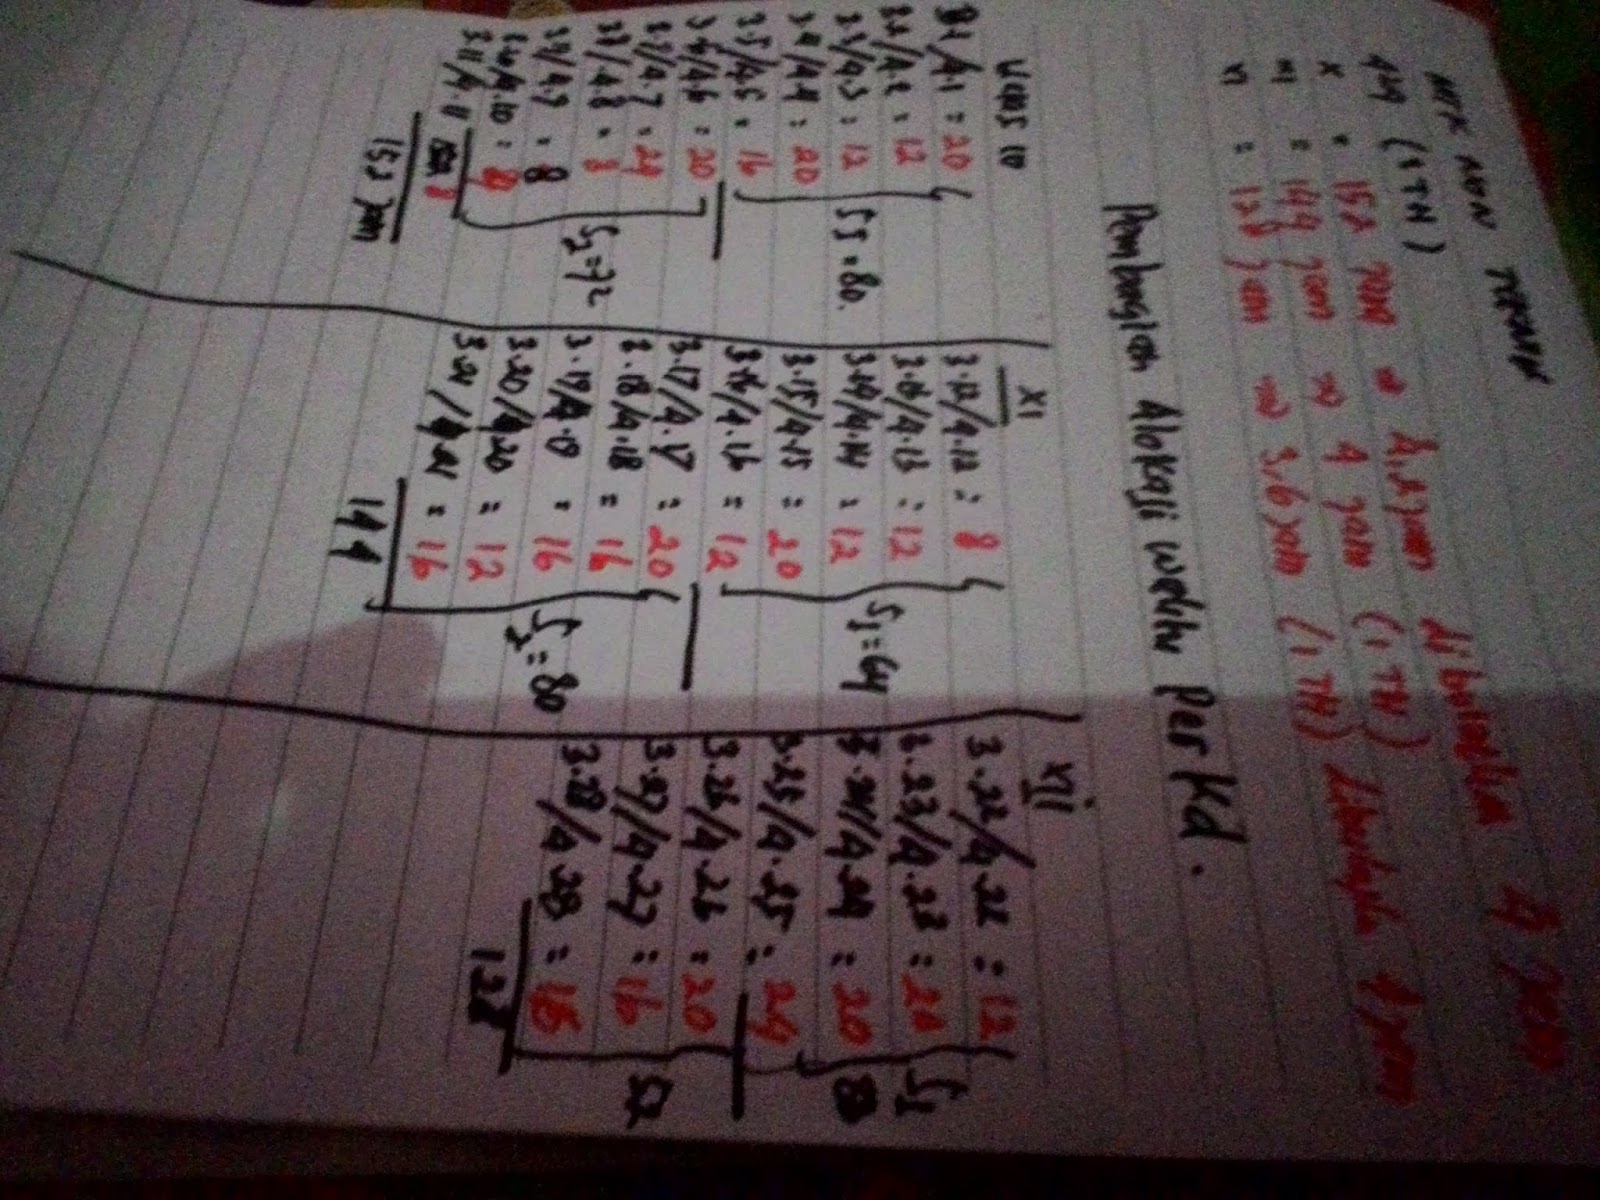 MTK NON TEKNIK
424 (1 TH)
X = 152 jam → 4,2 jam dibulatkan 4 jam
XI = 144 jam → 4 jam (1 TH)
= 128 jam → 3,6 jam (1 TH) 4 jam
Pembagian Alokasi waktu Per Kd.
KLAS 10
3.1/4.1 = 20
3.2/4.2 = 12
3.3/4.3 = 12
3.4/4.4 = 20
3.5/4.5 = 16
S1 = 80.
3.6/4.6 = 20
3.7/4.7 = 24
3.8/4.8 = 8
3.9/4.9 = 8
3.10/4.10 =
3.11/4.11
S2 = 72
152 jam
XI
3.12/4.12 = 8
3.13/4.13 = 12
3.14/4.14 = 12
3.15/4.15 = 20
3.16/4.16 = 12
S1 = 64
3.17/4.17 = 20
3.18/4.18 = 16
3.19/4.19 = 16
3.20/4.20 = 12
3.21/4.21 = 16
S2 = 80
144
XII
3.22/4.22 = 12
3.23/4.23 =
3.24/4.24 = 20
3.25/4.25 = 24
S1
3.26/4.26 = 20
3.27/4.27 = 16
3.28/4.28 =
52
128